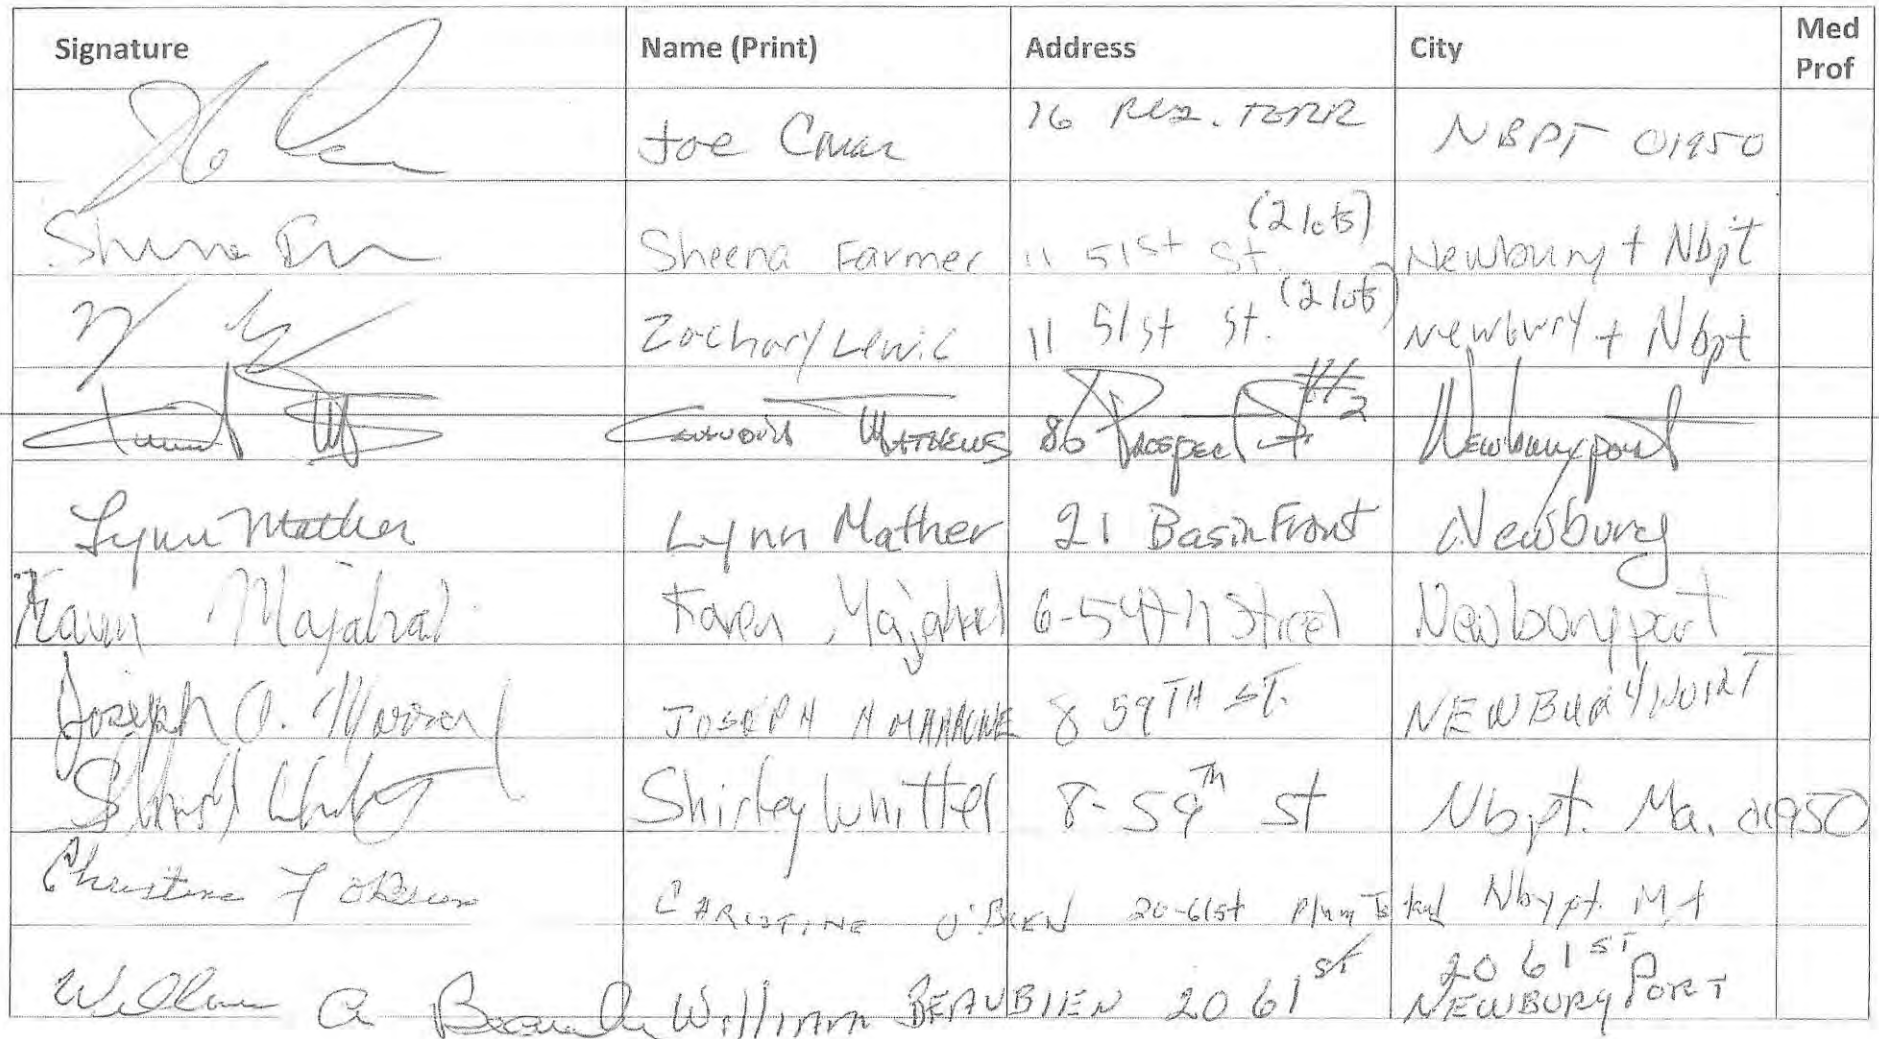 Signature Name (Print) Address City Med Prof
Joe 16 NBPT 01950
Sheena Farmer 11 51st St. (2 lots) Newbury + Nbpt
Zachary Lewis 11 51st St. (2 lots) Newbury + Nbpt
Mathews 86 Prospect St #2 Newburyport
Lynn Mather Lynn Mather 21 Basin Front Newbury
Karen Karen 6-54th Street Newburyport
Joseph A. JOSEPH A 8 59TH ST. NEWBURYPORT
Shirley Shirley Whittel 8-59th st Nbpt. Ma. 01950
Christine F O'Brien CHRISTINE O'BIEN 20-61st Plum Island Nbypt.
William A William BEAUBIEN 20 61st 20 61ST NEWBURYPORT